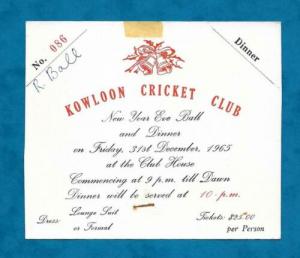 No. 086
Dinner
R Ball
KOWLOON CRICKET CLUB
New Year Eve Ball
and Dinner
on Friday, 31st December, 1965
at the Club House
Commencing at 9 p.m. till Dawn
Dinner will be served at 10-p.m.
Dress: Lounge Suit
or Formal
Tickets: $25.00
per Person